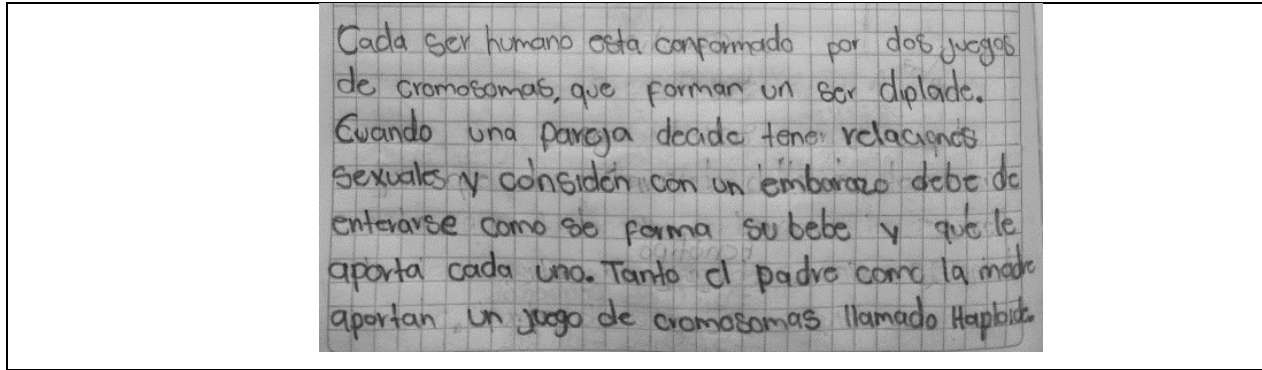 Cada ser humano esta conformado por dos juegos
de cromosomas, que forman un ser diplade.
Cuando una pareja decide tener relaciones
sexuales y considen con un embarazo debe de
enterarse como se forma su bebe y que le
aporta cada uno. Tanto el padre como la madre
aportan un juego de cromosomas llamado Haploide